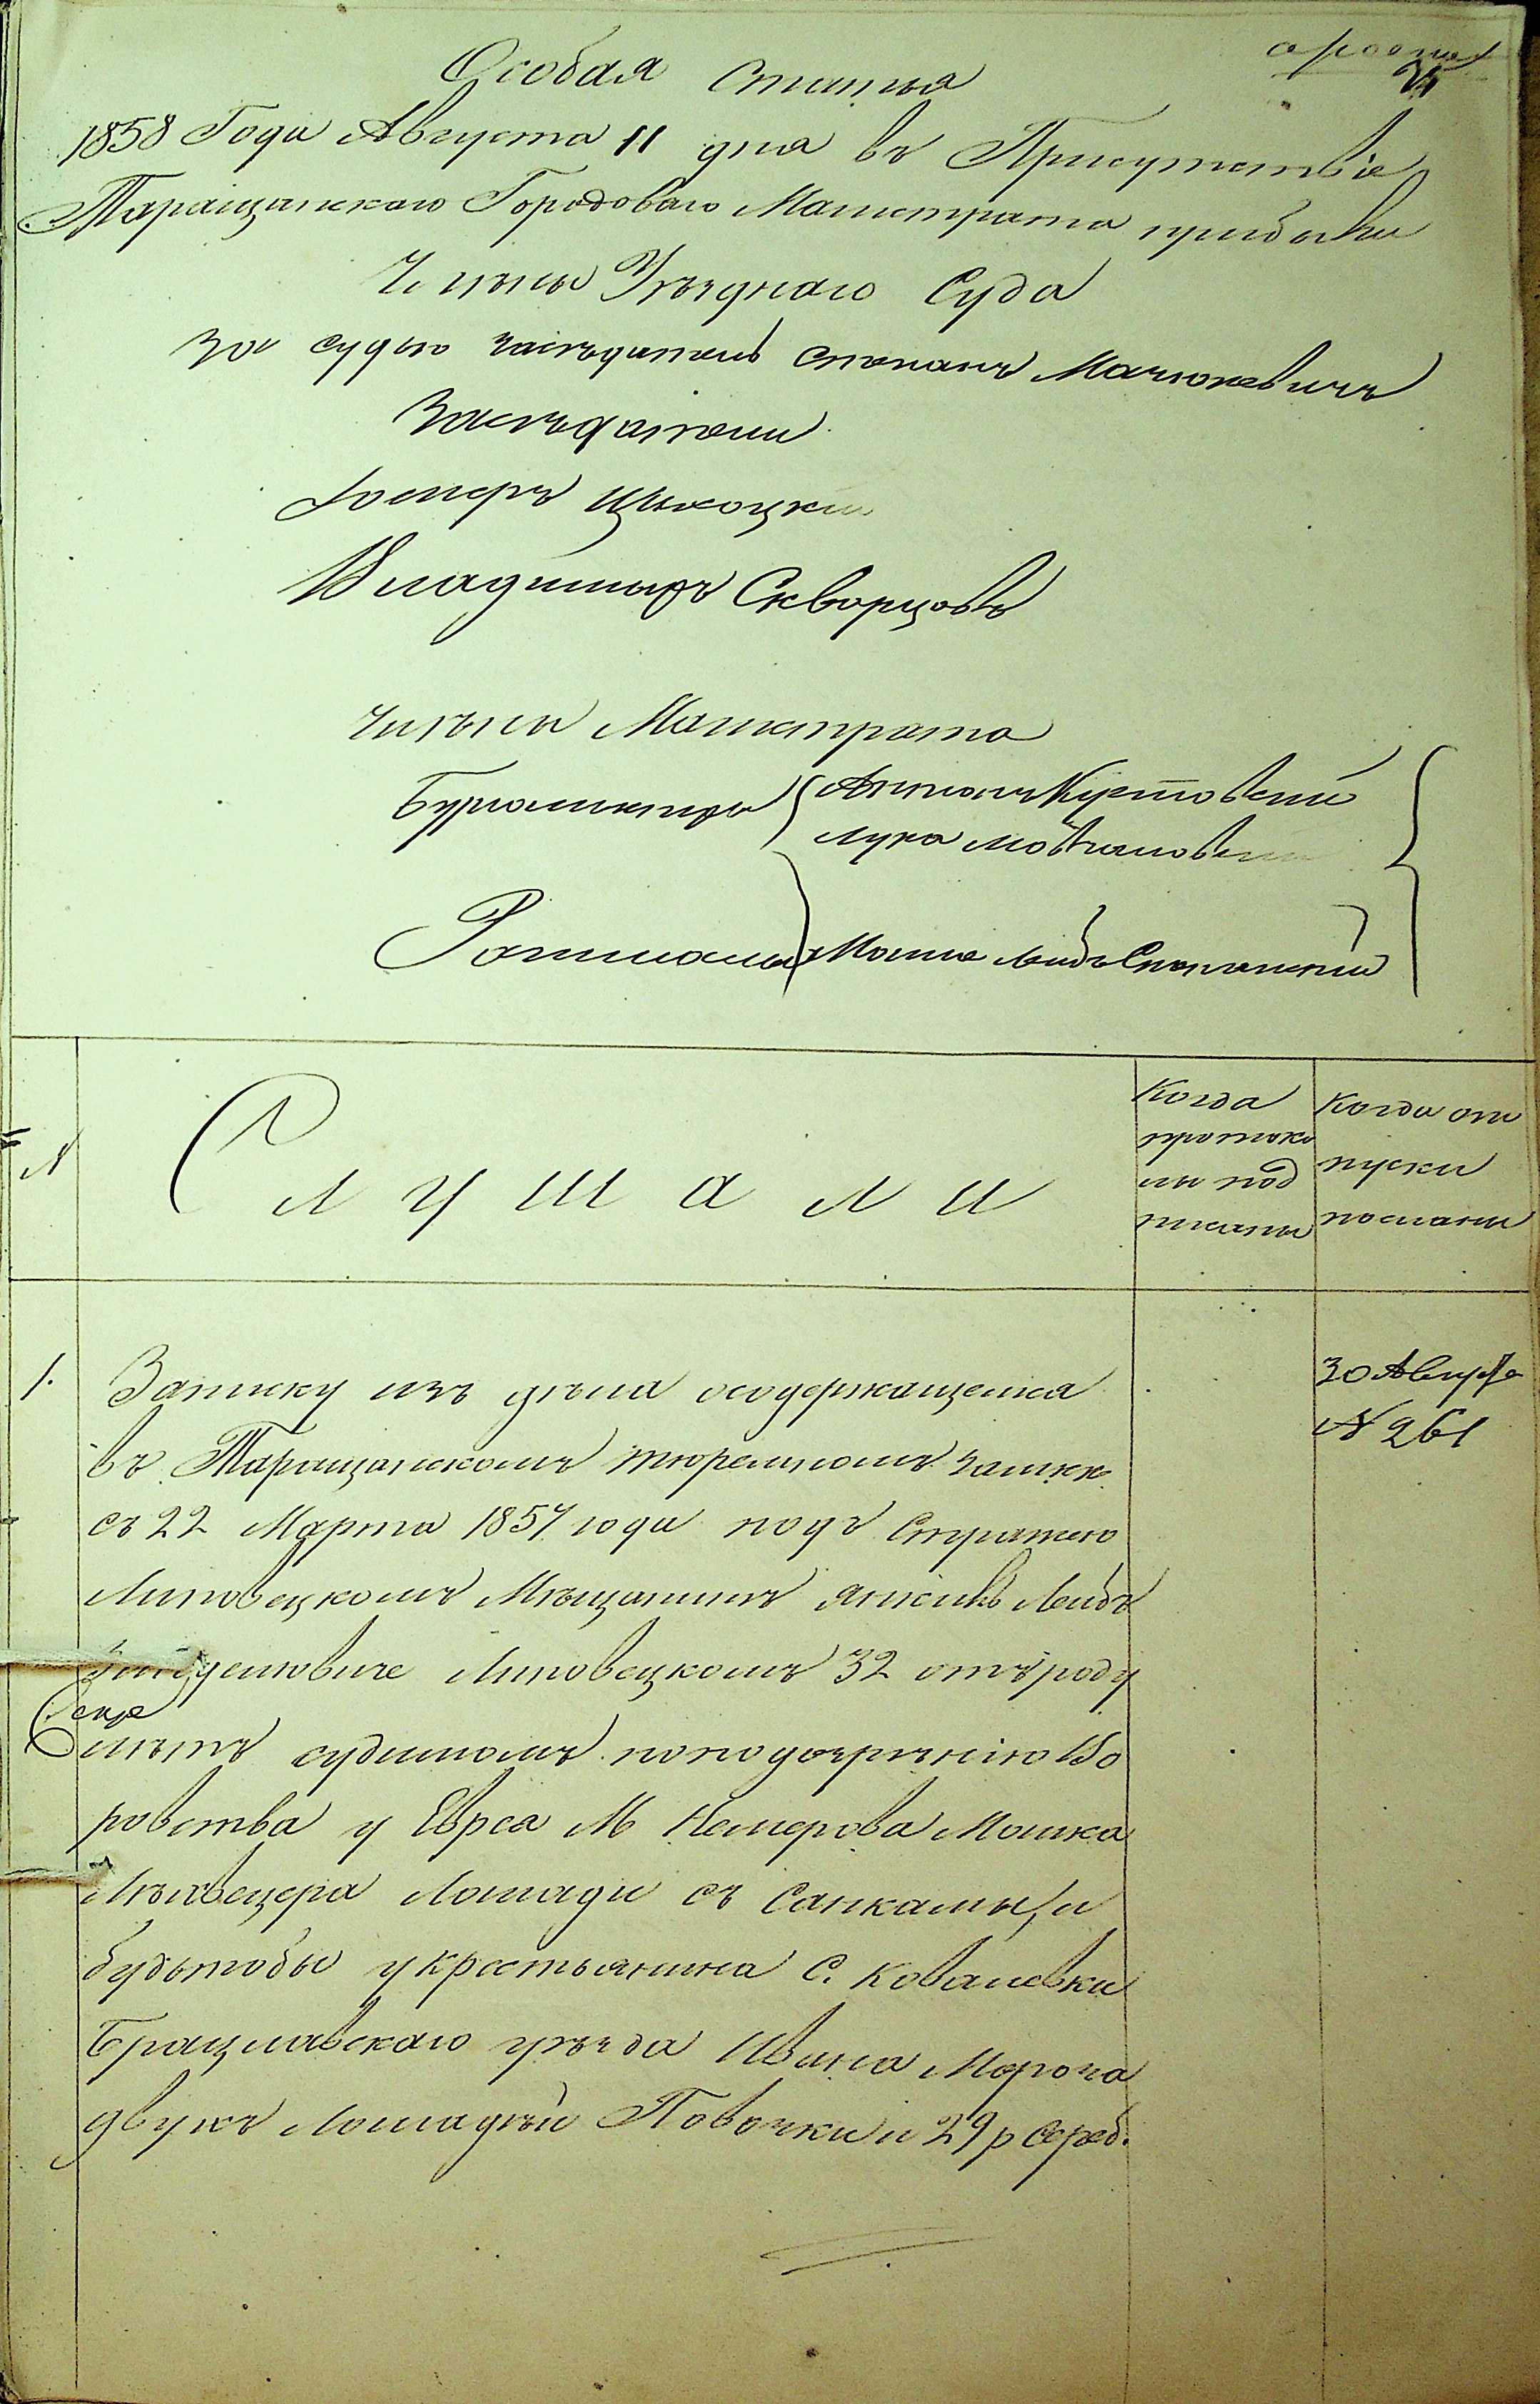 Особая статья
1858 Года Августа 11 дня въ Присутствіе
Таращанскаго Городоваго Магистрата прибыли
Члѣны Уѣзднаго Суда
За судью засѣдатель Степанъ Мацюкевичъ
Засѣдатели
Цыхоцкій
Владиміръ Скворцовъ
члѣны Магистрата
Бургомистры
Лука
Ратманы Мошко Лейбъ
№
Слушали
Когда
протоко
лы под
писаны
Когда от
пуски
посланы
1.
Записку изъ дѣла о содержащемся
въ Таращанскомъ тюремномъ замкѣ
съ 22 Марта 1857 года подъ Стражею
Липовецкомъ Мѣщанинѣ Янкивѣ Лейбѣ
Липовецкомъ 32 отъ роду
лѣтъ судимомъ по подозрѣнію Во
ровства у Еврея М. Немерова Мошка
Лошади съ Санками, и
будьтобы у крестьянина С. Ковалевки
Брацлавскаго уѣзда Ивана Мороза
двухъ Лошадѣй Повозки и 29 р Сереб.
30 Августа
№ 261